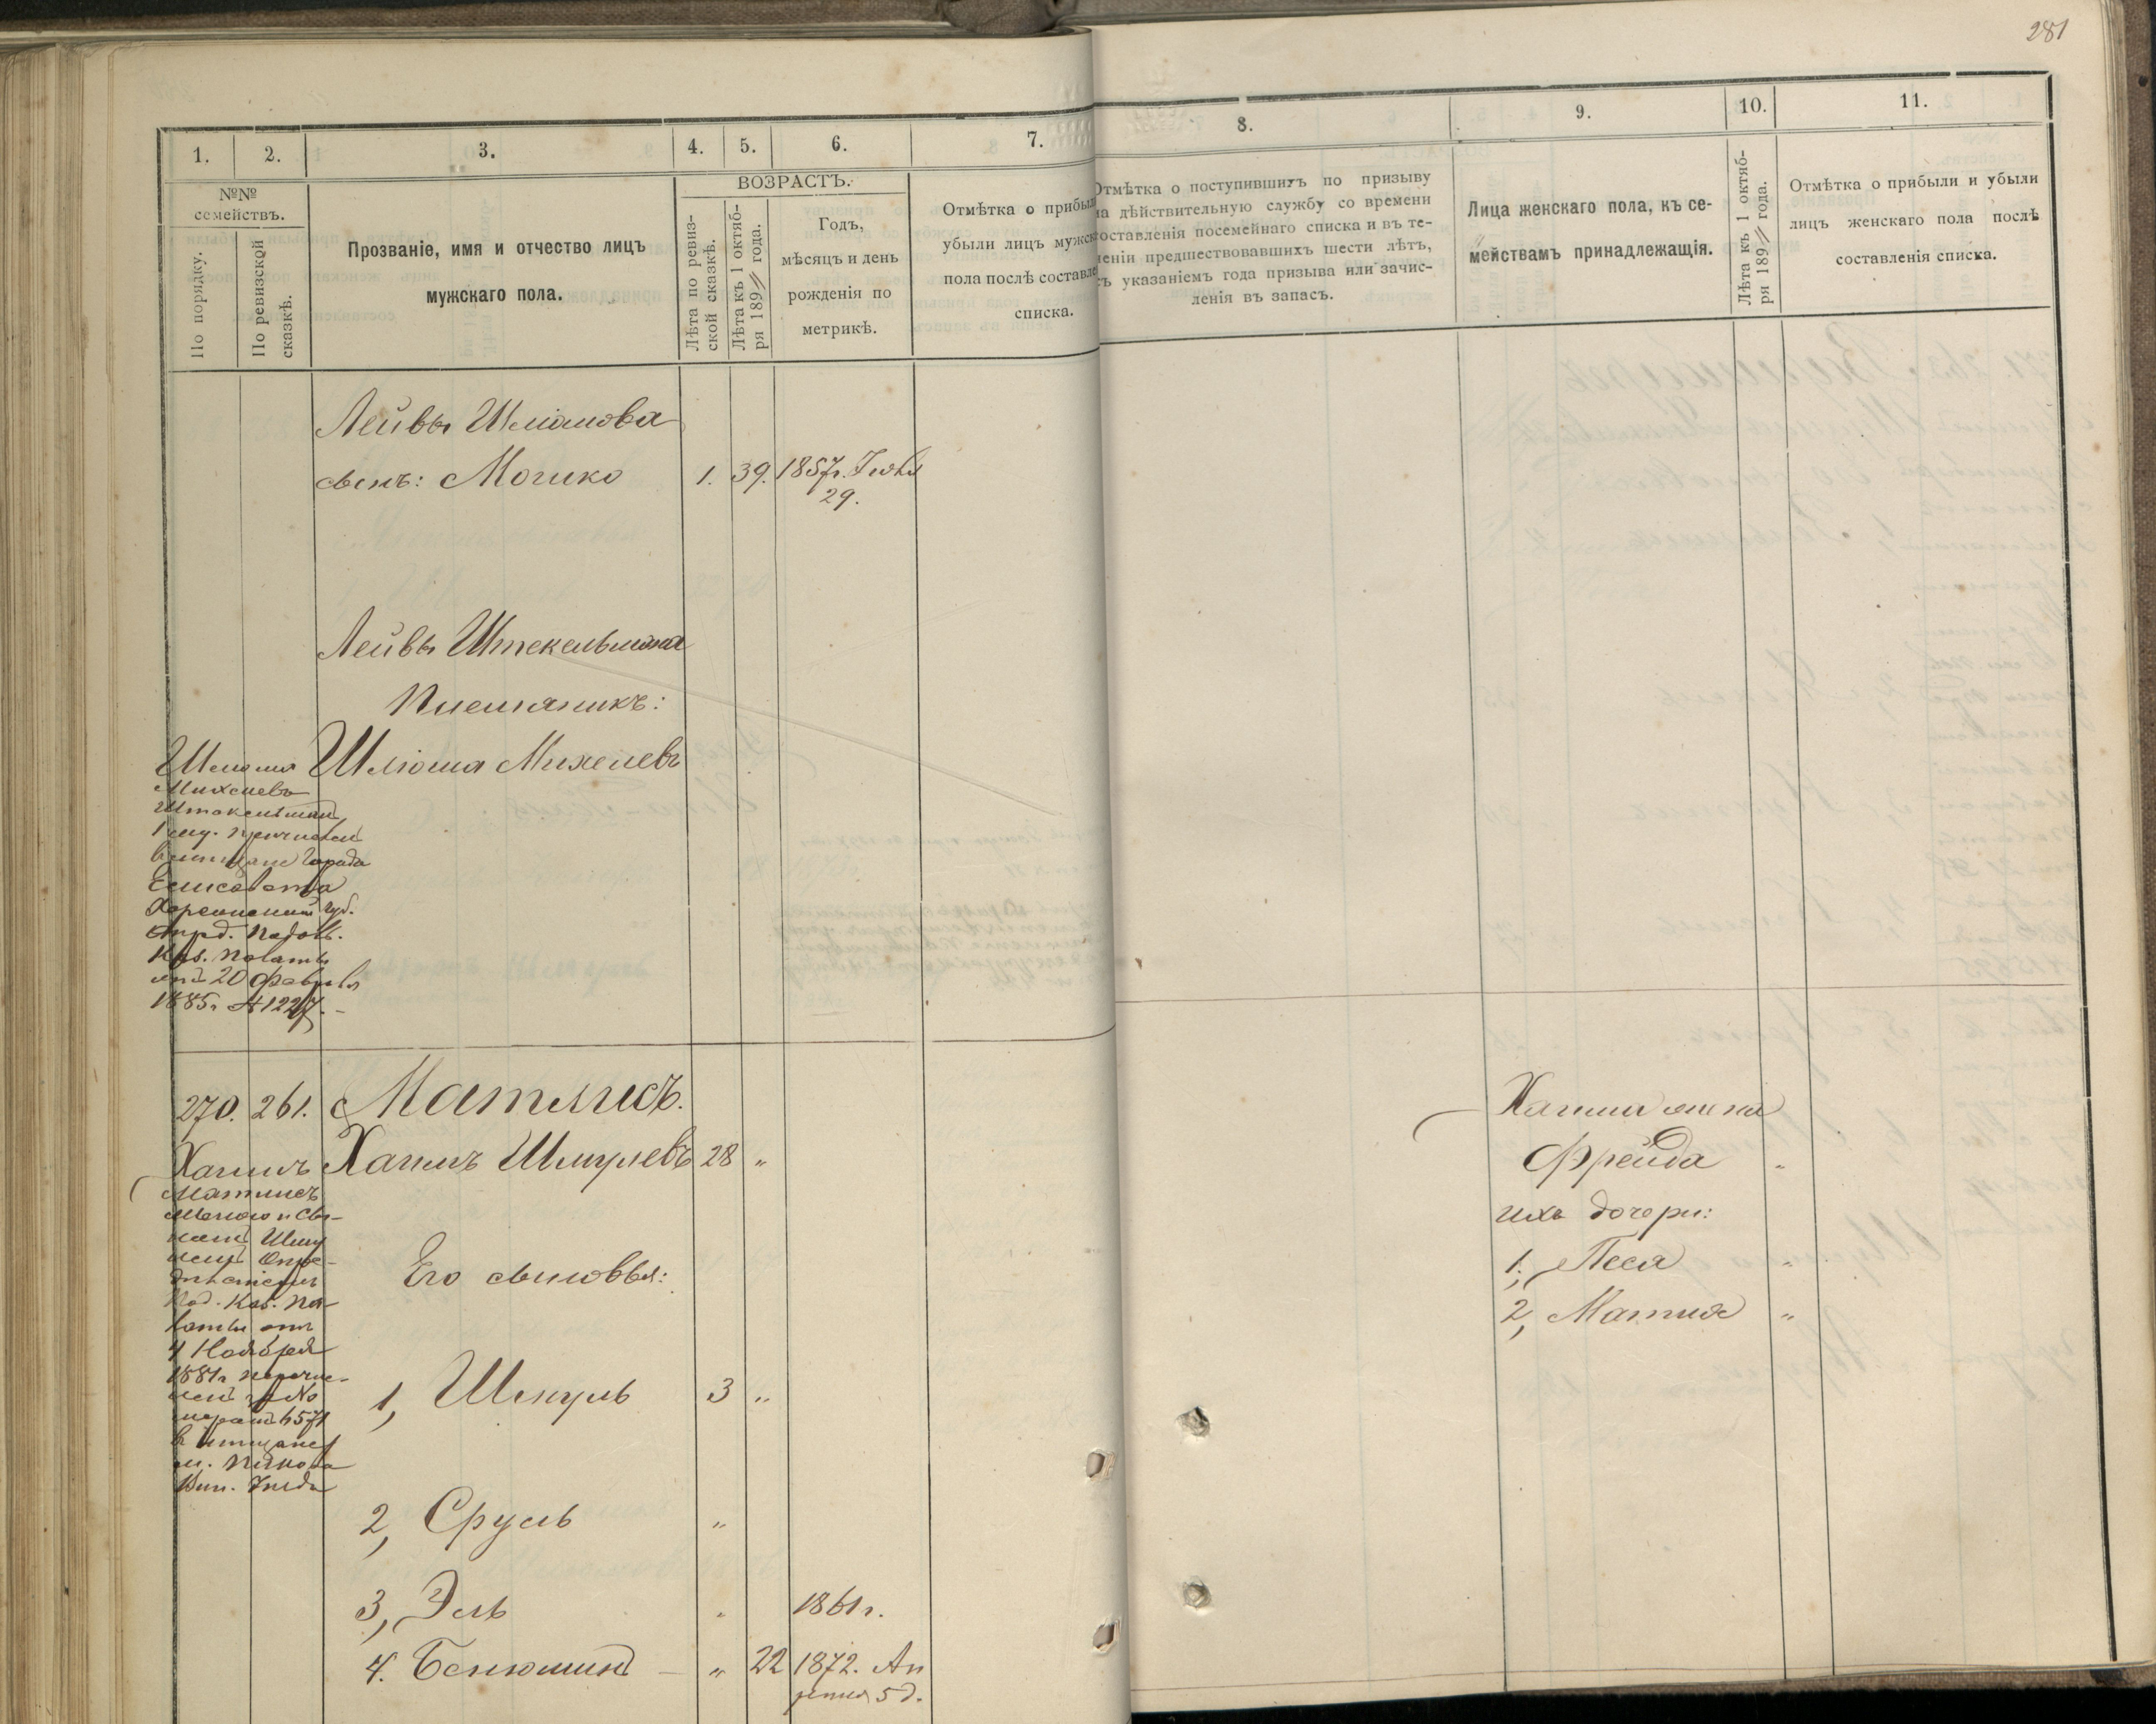 281
1.
2.
3.
4.
5.
6.
7.
8.
9.
10.
11.
№№
семействъ.
По порядку.
По ревизской
сказкѣ.
Прозваніе, имя и отчество лицъ
мужскаго пола.
ВОЗРАСТЪ.
Лѣта по ревиз-
ской сказкѣ.
Лѣта къ 1 октяб-
ря 189 года.
Годъ,
мѣсяцъ и день
рожденія по
метрикѣ.
Отмѣтка о прибы
убыли лицъ мужск
пола послѣ составле
списка.
Отмѣтка о поступившихъ по призыву
на дѣйствительную службу со времени
составленія посемейнаго списка и въ те-
ченіи предшествовавшихъ шести лѣтъ,
съ указаніемъ года призыва или зачис-
ленія въ запасъ.
Лица женскаго пола, къ се-
мействамъ принадлежащія.
Лѣта къ 1 октяб-
ря 189 года.
Отмѣтка о прибыли и убыли
лицъ женскаго пола послѣ
составленія списка.
Лейбы Шліомова
сынъ: Мошко 1. 39. 1857г. Іюля
29.
Лейбы Штекельмана
Племяникъ:
Шліома Михелевъ
Шліома
Михелевъ
Штекельманъ
перечисленъ
въ мѣщане города
Елисавета
Херсонской губ.
опред. Подол.
Каз. Палаты
отъ 20 февраля
1885г. № 1227.
270. 261. Матлисъ.
Хаимъ Шмулевъ 28 „
Хаимъ
Матлисъ
съ женою и сы-
номъ Шму
лемъ Опре-
дѣленіемъ
Под. Каз. Па-
латы отъ
4 Ноября
1881г. перечис-
ленъ за №
6571
въ мѣщане
м. Пикова
Вин. уѣзда
Его сыновья:
1, Шмуль 3 „
2, Сруль „
3, Эль „ 1861г.
4. Беньюминъ „ 22 1872. Ап
реля 5 д.
Хаима жена
Фрейда „
ихъ дочери:
1, Песя „
2, Матля „